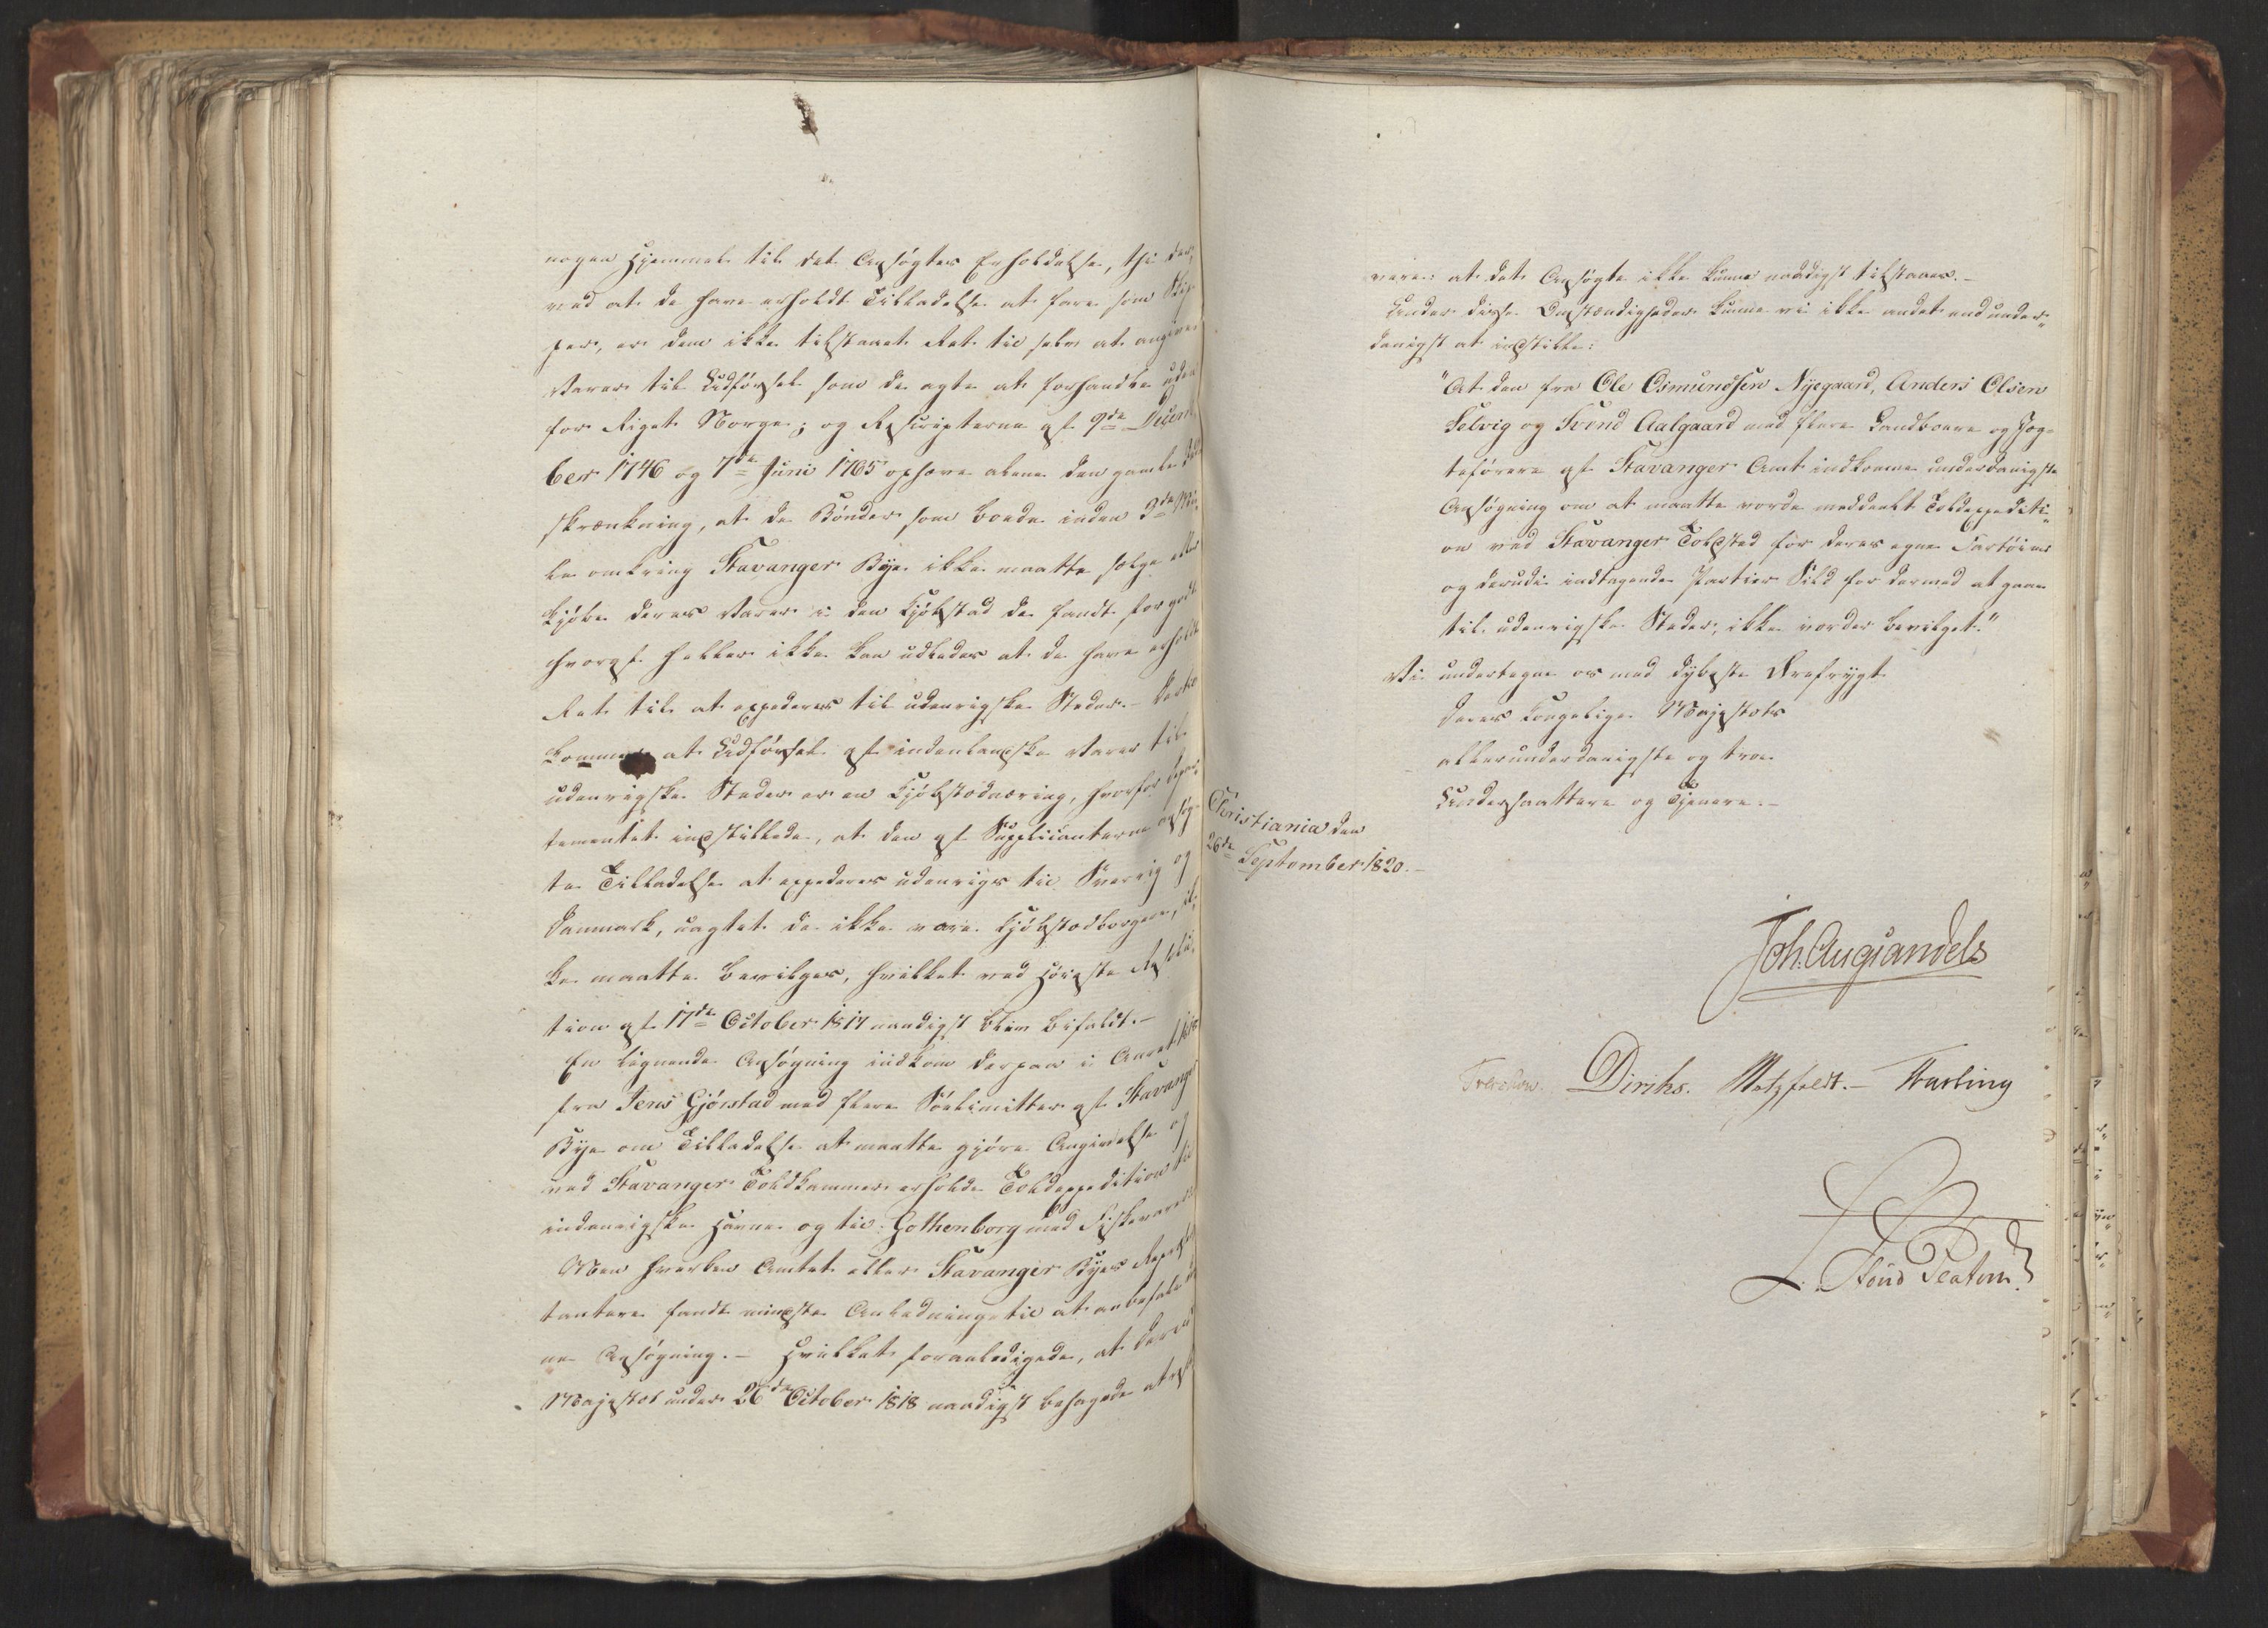 nogen Hjemmel til det Ansøgtes Erholdelse, thi der¬
ved at de have erholdt Tilladelse at fare som Skip¬
per, er dem ikke tilstaaet Ret til selv at angive
Varer til Udførsel som de agte at forhandle uden
for Riget Norge; og Rescripterne af 9de Decem¬
ber 1746 og 7de Juni 1765 ophæve alene den gamle
skrænkning, at de Bønder som boede inden 3de Mi¬
le omkring Stavanger Bye ikke maatte sælge eller
kjøbe deres Varer i den Kjøbstad de fandt for godt
hvoraf heller ikke kan udledes at de have erholdt
Ret til at expederes til udenrigske Steder. - Hertil
kommer at Udførsel af indenlandske Varer til
udenrigske Steder er en Kjøbstadnæring, hvorfor Depar¬
tementet indstillede, at den af Supplicanterne ansøg¬
te Tilladelse at expederes udenrigs til Sverrig og
Danmark, uagtet de ikke vare Kjøbstadborgere, ik¬
ke maatte bevilges, hvilket ved Høieste Resolu¬
tion af 17de October 1817 naadigst blev bifaldt. -
En lignende Ansøgning indkom derpaa i Aaret 1818
fra Jens Gjørstad med flere Søelimitter af Stavanger
Bye om Tilladelse at maatte gjøre Angivelse og
ved Stavanger Toldkammer erholde Toldexpedition til
indenrigske Havne og til Gothenborg med Fiskevarer
Men hverken Amtet eller Stavanger Byes Repræsen¬
tantere fandt mindste Anledning til at anbefale den¬
ne Ansøgning. - Hvilket foranledigede, at Deres
Majestæt under 26de October 1818 naadigst behagede at
vere: at det Ansøgte ikke kunne naadigst tilstaaes. -
Under disse Omstændigheder kunne vi ikke andet end under¬
danigst at indstille:
"At den fra Ole Osmundsen Nyegaard, Anders Olsen
Selvig og Svend Aalgaard med flere Landboere og Jæg¬
teførere af Stavanger Amt indkomne underdanigste
Ansøgning om at maatte vorde meddeelt Toldexpediti¬
on ved Stavanger Toldsted for deres egne Fartøier
og derudi indtagende Partier Sild for dermed at gaae
til udenrigske Steder, ikke vorder bevilget."
Vi undertegne os med dybeste Ærefrygt
Deres Kongelige Majestæts
allerunderdanigste og troe
Undersaattere og Tjenere. -
Christiania den
26de September 1820. -
Joh. Aug Sandels
Treschow. Diriks. Motzfeldt. - Fasting
L. Stoud Platou